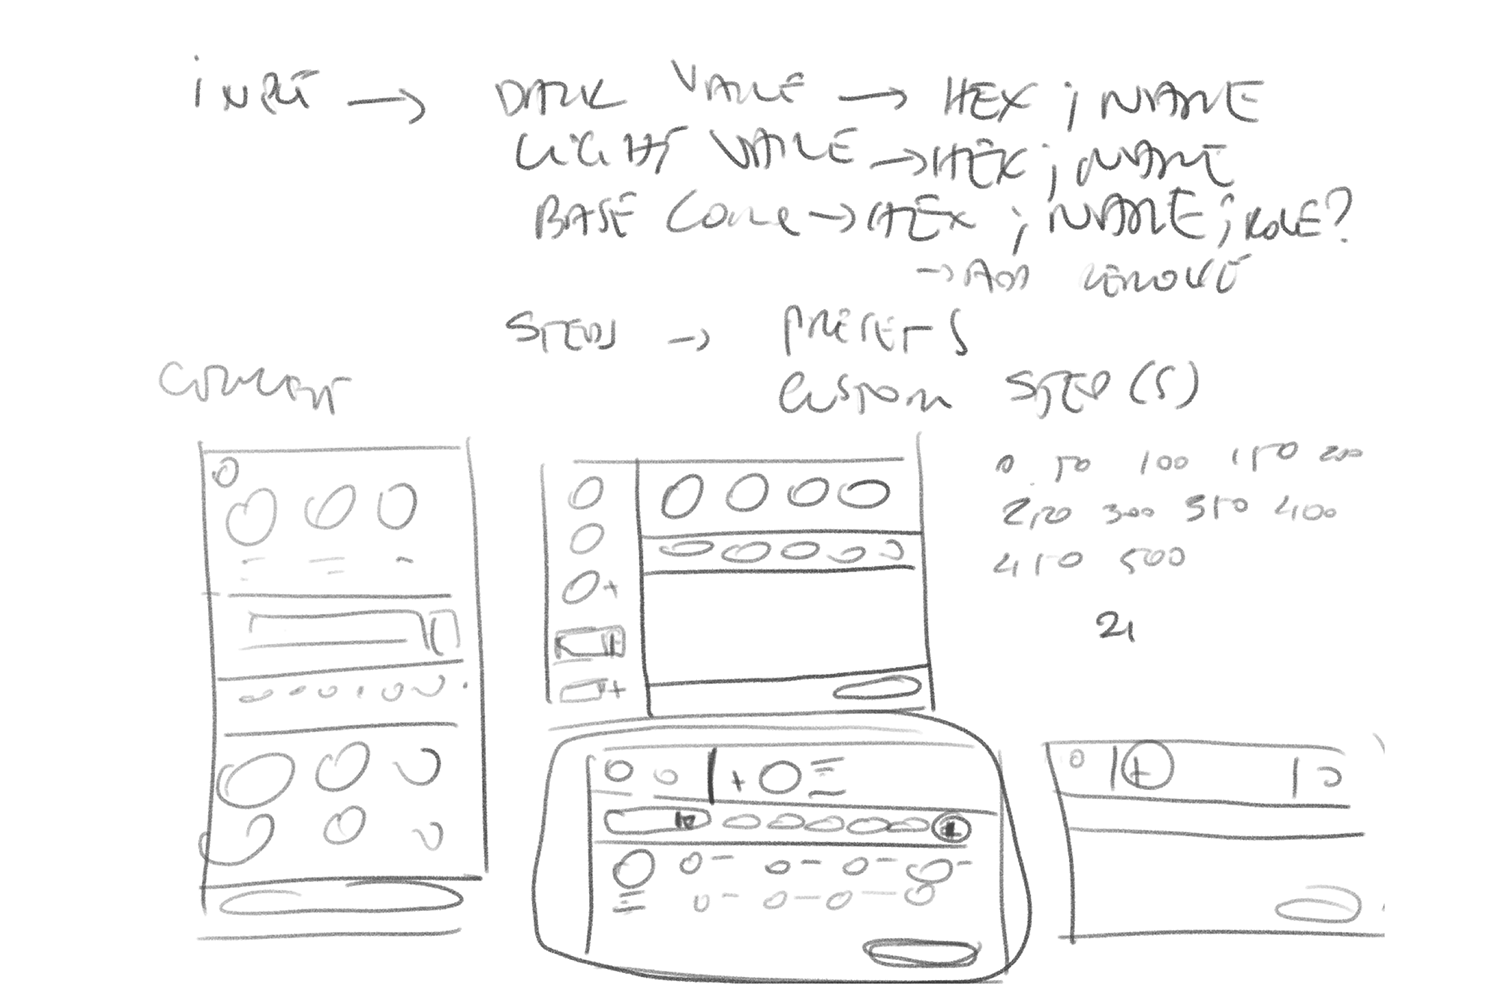 INPUT → DARK VALUE → HEX ; NAME
LIGHT VALUE → HEX ; NAME
BASE COLOR → HEX ; NAME ; ROLE?
→ ADD REMOVE
STEPS → PRESETS
CUSTOM STEP(S)
CURRENT
0 50 100 150 200
250 300 350 400
450 500
21